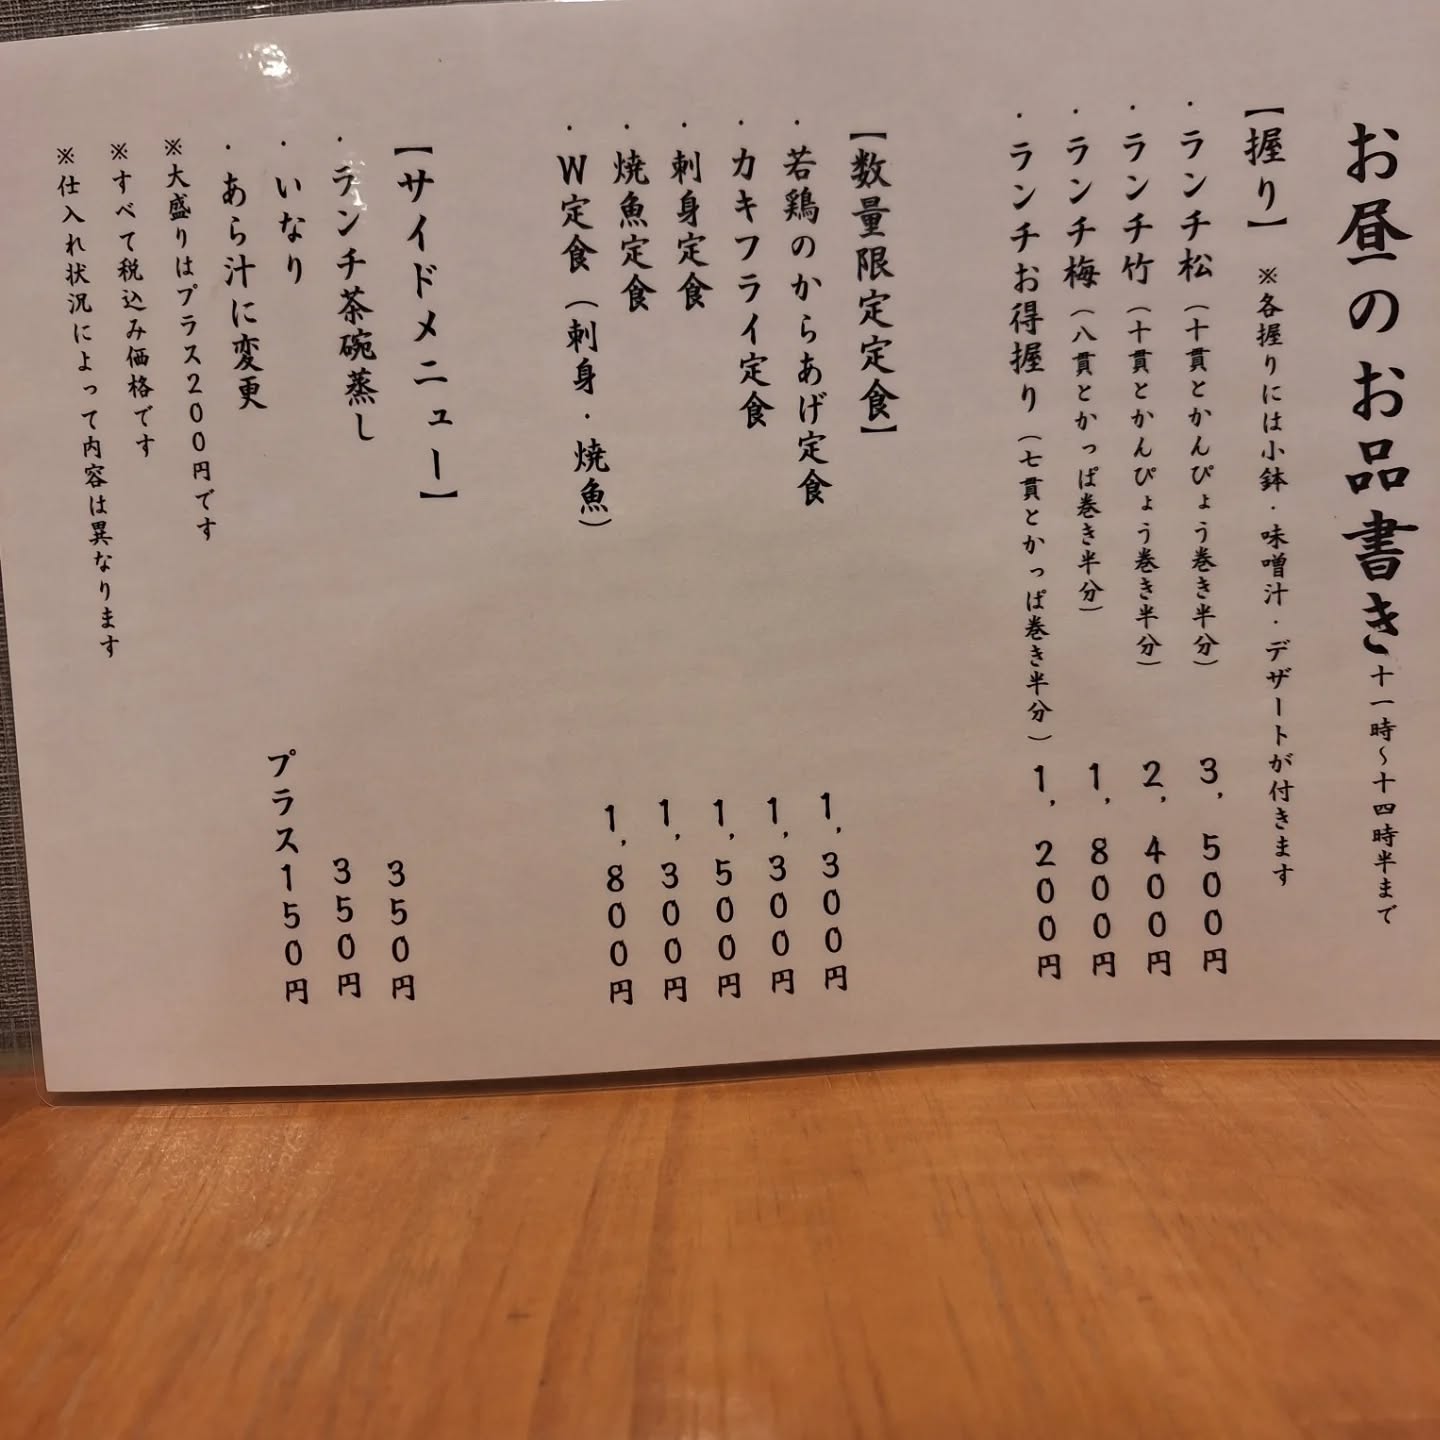 お昼のお品書き 十一時~十四時半まで
【握り】 ※各握りには小鉢・味噌汁・デザートが付きます
・ランチ松(十貫とかんぴょう巻き半分) 3,500円
・ランチ竹(十貫とかんぴょう巻き半分) 2,400円
・ランチ梅(八貫とかっぱ巻き半分) 1,800円
・ランチお得握り(七貫とかっぱ巻き半分) 1,200円
【数量限定定食】
・若鶏のからあげ定食 1,300円
・カキフライ定食 1,300円
・刺身定食 1,500円
・焼魚定食 1,300円
・W定食(刺身・焼魚) 1,800円
【サイドメニュー】
・ランチ茶碗蒸し 350円
・いなり 350円
・あら汁に変更 プラス150円
※大盛りはプラス200円です
※すべて税込み価格です
※仕入れ状況によって内容は異なります